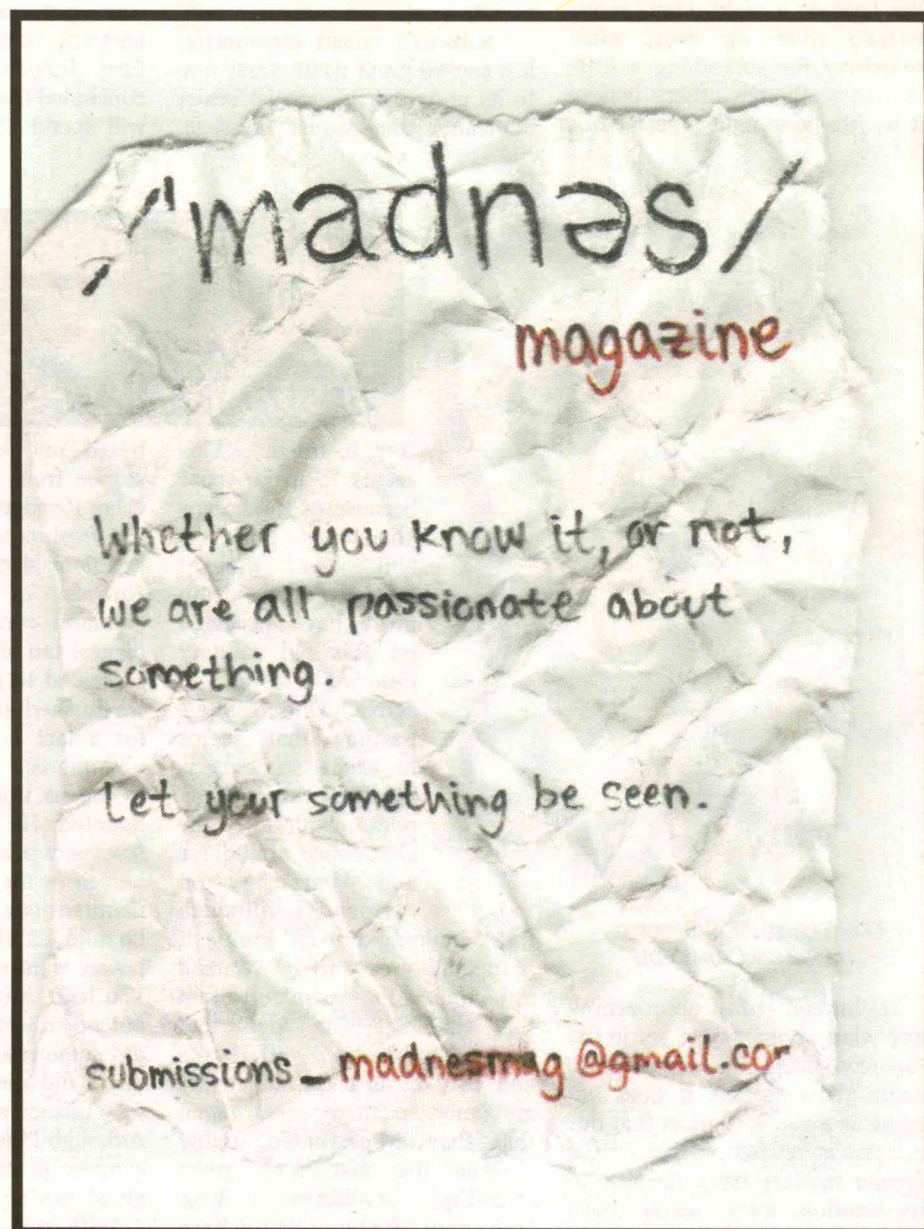 /'madnəs/
magazine
Whether you know it, or not,
we are all passionate about
something.
Let your something be seen.
submissions_madnesmag@gmail.cor